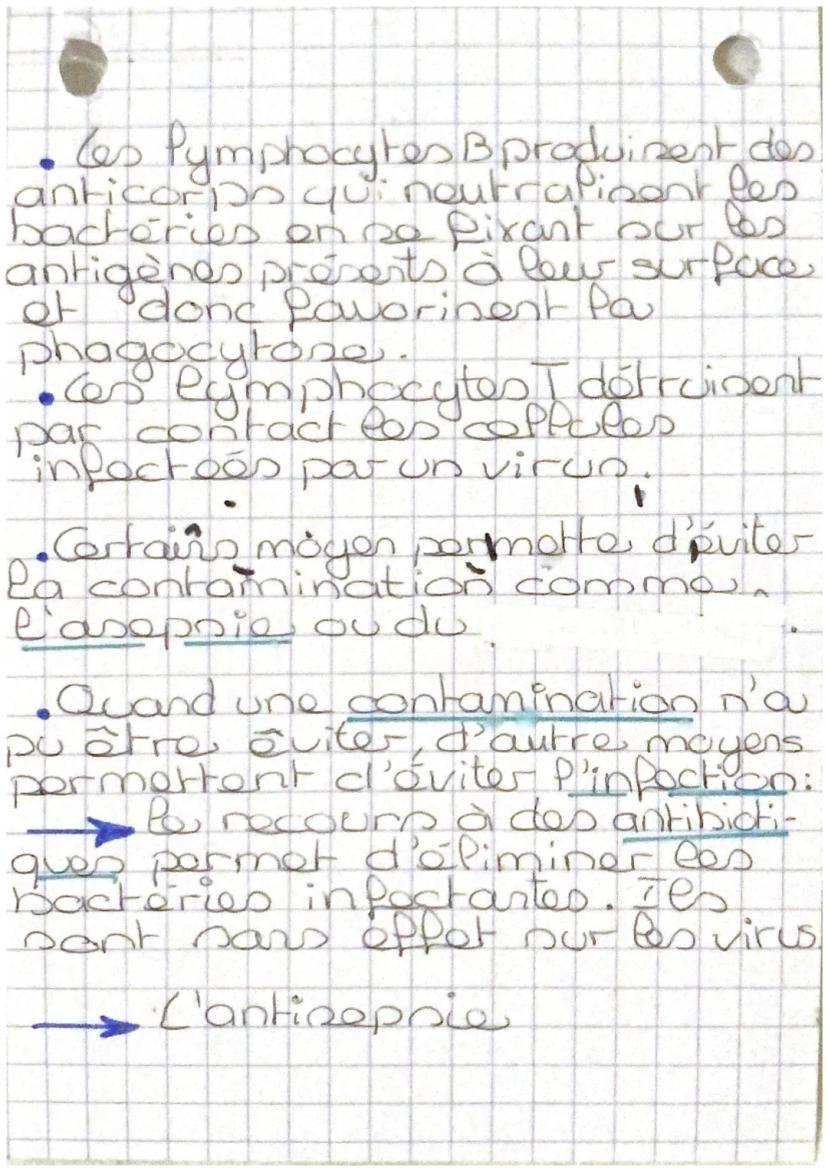 . Les lymphocytes B produisent des
anticorps qui neutralisent les
bactéries en se fixant sur les
antigènes présents à leur surface
et donc favorisent la
phagocytose.
. Les lymphocytes T détruisent
par contact les cellules
infectées par un virus.
. Certains moyen permette d'éviter
la contamination comme
l'asepsie ou du
. Quand une contamination n'a
pu être éviter, d'autre moyens
permettent d'éviter l'infection:
→ le recours à des antibioti-
ques permet d'éliminer les
bactéries infectantes. Iles
sont sans effet sur les virus
→ L'antisepsie